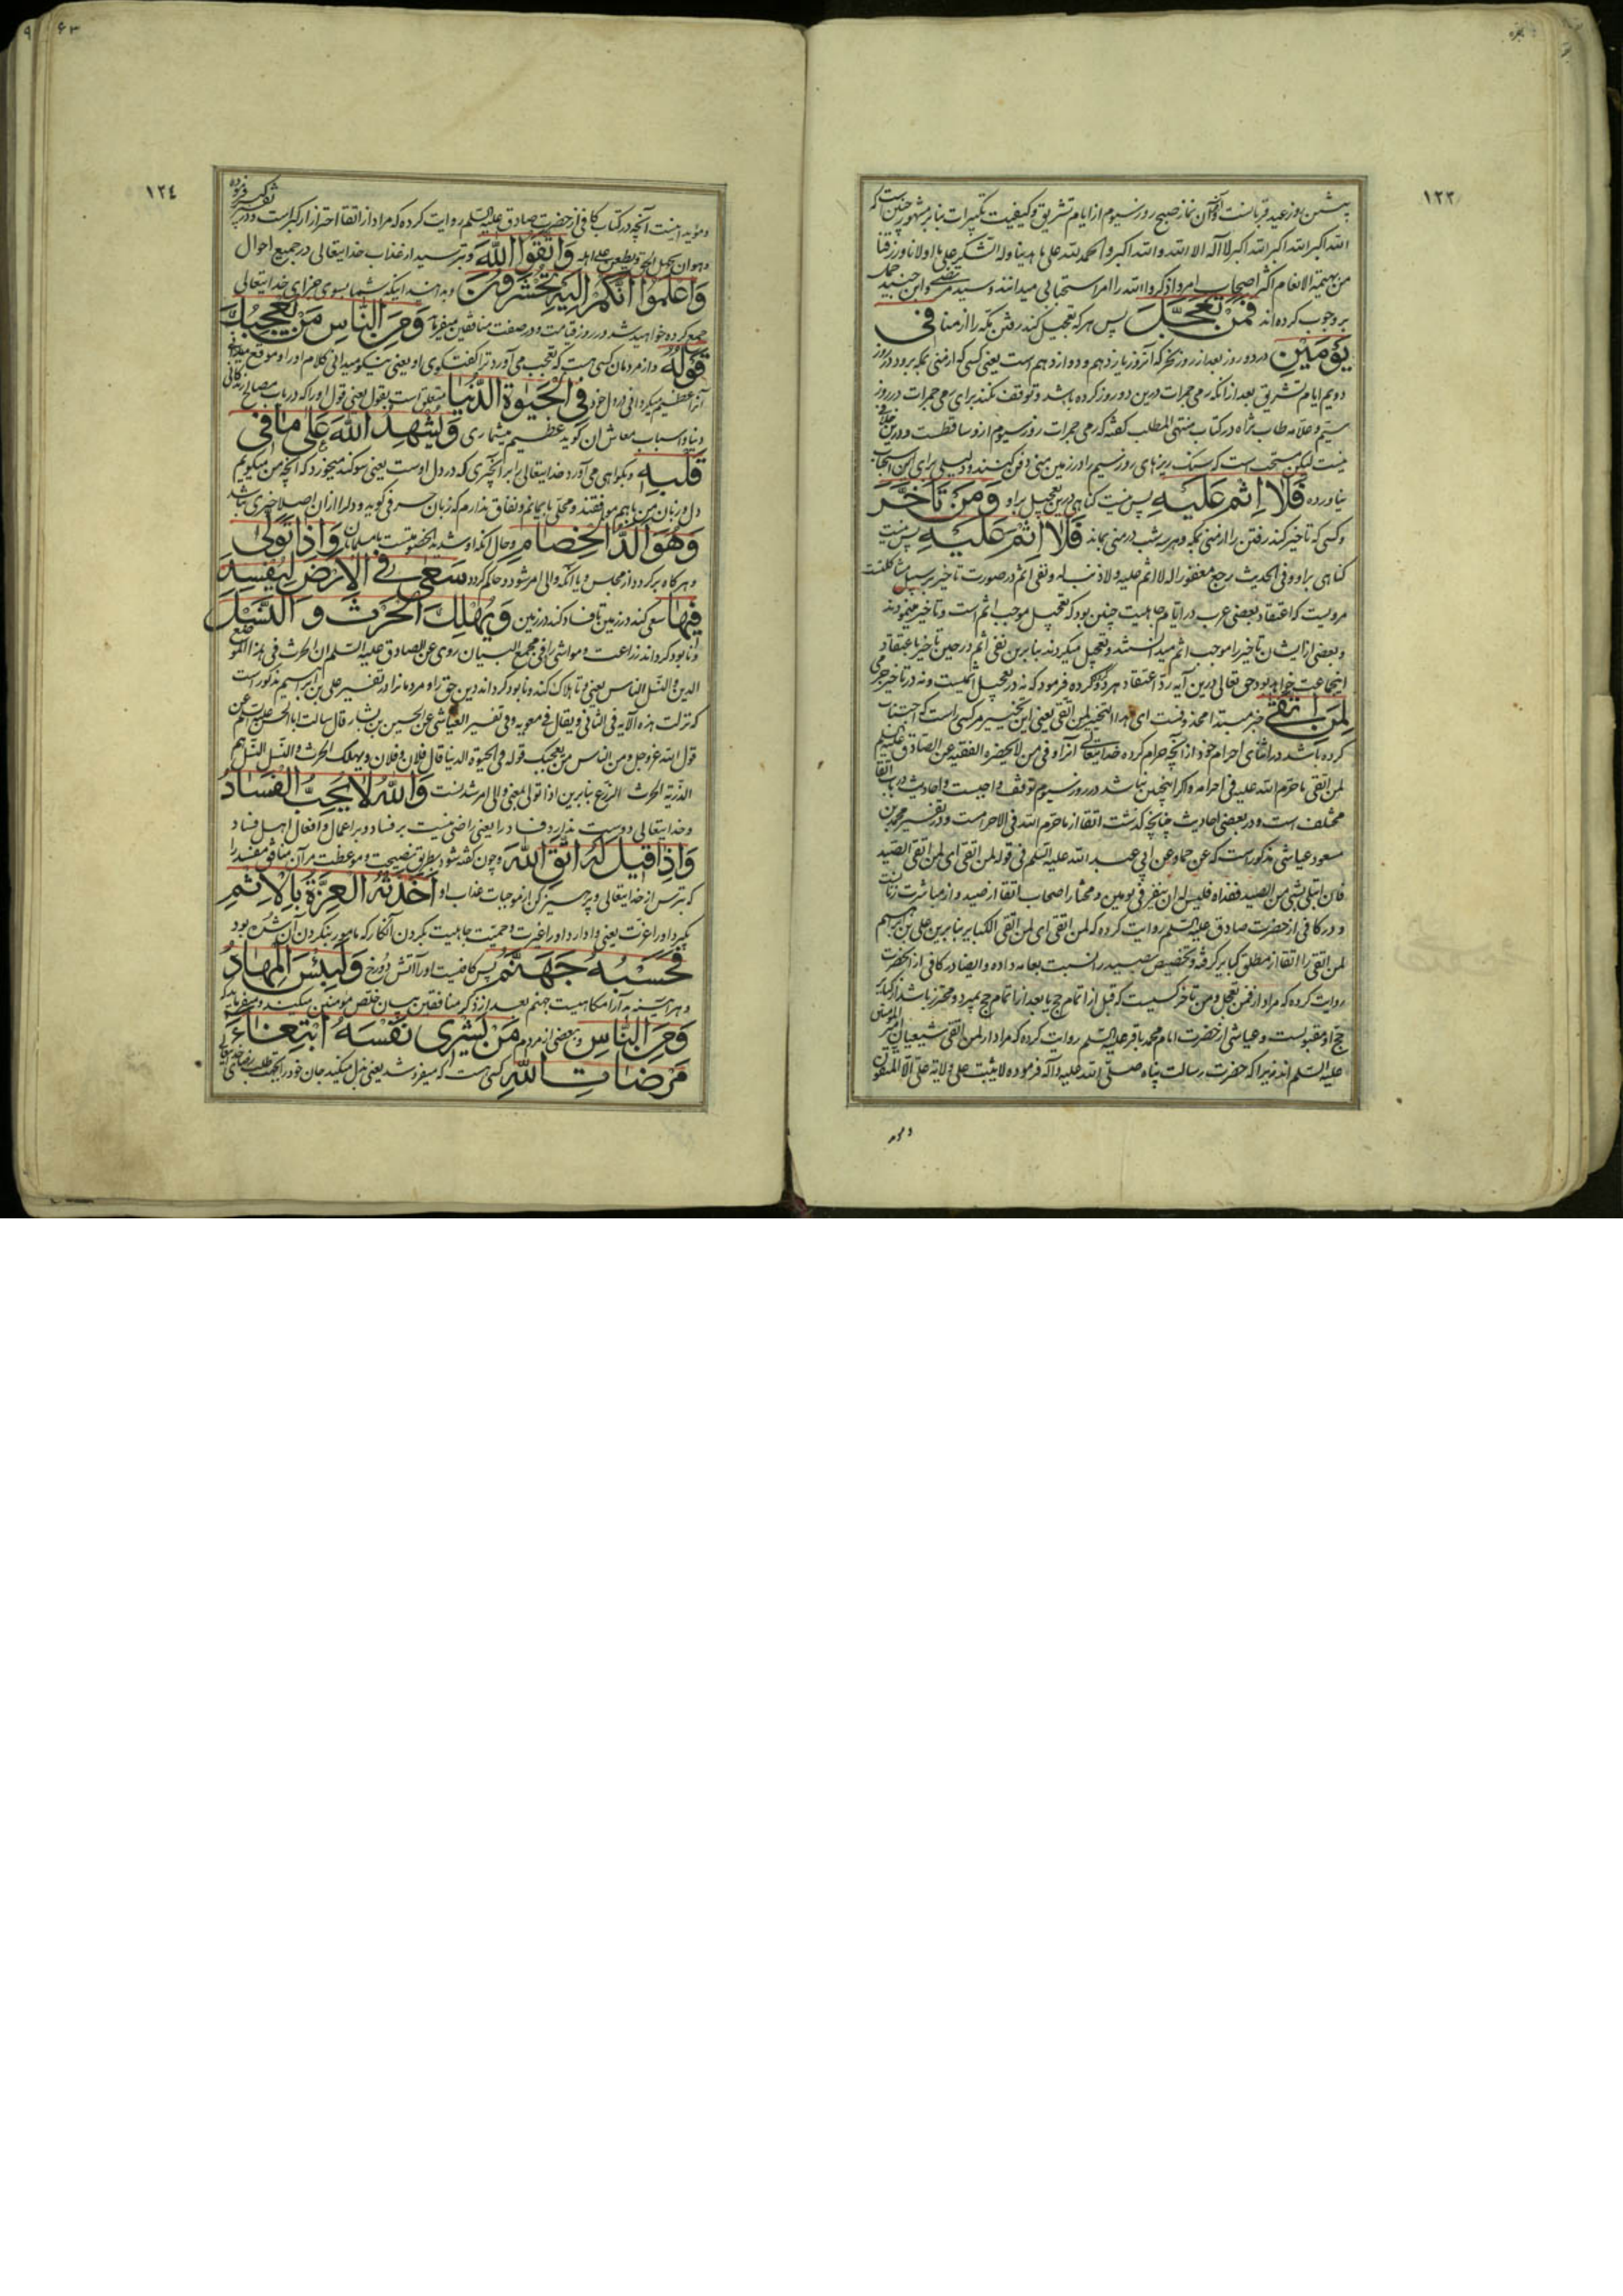 ۱۲۳
پیشین روز عید قربانست و آخر آن نماز صبح روز سیوم از ایام تشریق و کیفیت تکبیرات بنابر مشهور چنین است که
الله اکبر الله اکبر لا اله الا الله و الله اکبر و الحمد لله علی ما هدینا و له الشکر علی ما اولانا و رزقنا
من بهیمة الانعام اکثر اصحاب امر و اذکروا الله را امر استحبابی میدانند و سید مرتضی و ابن جنید حمل
بر وجوب کرده اند فَمَنْ تَعَجَّلَ پس هر که تعجیل کند رفتن بمکه را از منا فی
یَوْمَیْنِ در دو روز بعد از روز نحر که آنروز یازدهم و دوازدهم است یعنی کسی که از منی بمکه برود در روز
دویم ایام تشریق بعد از آنکه رمی جمرات درین دو روز کرده باشد و توقف نکند برای رمی جمرات در روز
سیم و علامه طاب ثراه در کتاب منتهی المطلب گفته که رمی جمرات روز سیوم ازو ساقطست و درین خلافی
نیست لیکن مستحب است که سنک ریزهای روز سیم را در زمین منی دفن کنند و دلیلی برای این استحباب
نیاورده فَلَا اِثْمَ عَلَیْهِ پس نیست کناهی درین تعجیل براو وَمَنْ تَاَخَّرَ
و کسی که تاخیر کند رفتن را از منی بمکه و هر سه شب در منی بماند فَلَا اِثْمَ عَلَیْهِ پس نیست
کناهی براو و فی الحدیث یرجع مغفورا له لا اثم علیه و لا ذنب له و نفی اثم در صورت تاخیر بر سبیل مشاکلت
مرویست که اعتقاد بعضی عرب در ایام جاهلیت چنین بود که تعجیل موجب اثم است و تاخیر مینمودند
و بعضی از ایشان تاخیر را موجب اثم میدانستند و تعجیل میکردند بنابرین نفی اثم در حین تاخیر باعتقاد
اینجماعت خواهد بود حق تعالی درین آیه رد اعتقاد هر دو گروه کرده فرمود که نه در تعجیل اثمیست و نه در تاخیر جرمی
لِمَنِ اتَّقیٰ خبر مبتدا محذوفست ای هذا التخییر لمن اتقی یعنی این تخییر مر کسی راست که اجتناب
کرده باشد در اثنای احرام خود از آنچه حرام کرده خدایتعالی آنرا و فی من لا یحضره الفقیه عن الصادق علیه السلم
لمن اتقی ما حرم الله علیه فی احرامه و اکر اینچنین نباشد در روز سیوم توقف واجبست و احادیث در باب اتقا
مختلف است و در بعضی احادیث چنانچه کذشت اتقا از ما حرم الله فی الاحرامست و در تفسیر محمد بن
مسعود عیاشی مذکور است که عن حماد عن ابی عبد الله علیه السلم فی قوله لمن اتقی ای لمن اتقی الصید
فان ابتلی بشی من الصید ففداه فلیس له ان ینفر فی یومین و مختار اصحاب اتقا از صید و از مباشرت زنانست
و در کافی از حضرت صادق علیه السلم روایت کرده که لمن اتقی ای لمن اتقی الکبایر بنابرین علی بن ابراهیم
لمن اتقی را اتقا از مطلق کبایر کرفته و تخصیص بصید را نسبت بعامه داده و ایضا در کافی از آنحضرت
روایت کرده که مراد از فمن تعجل و من تاخر کسیست که قبل از اتمام حج یا بعد از اتمام حج بمیرد و محترز باشد از کبایر
حج او مقبولست و عیاشی از حضرت امام محمد باقر علیه السلم روایت کرده که مراد از لمن اتقی شیعیان امیر المؤمنین
علیه السلم اند زیرا که حضرت رسالت پناه صلی الله علیه و آله فرموده لا یثبت علی ولایة علی الا المتقون
۱۲٤
و مؤید اینست آنچه در کتاب کافی از حضرت صادق علیه السلم روایت کرده که مراد از اتقا احتراز از کبر است و در تفسیر کبر فرموده
و هو ان یجهل الحق و یطعن علی اهله وَاتَّقُوا اللّٰهَ و بترسید از عذاب خدایتعالی در جمیع احوال
وَاعْلَمُوا اَنَّکُمْ اِلَیْهِ تُحْشَرُونَ و بدانید اینکه شما بسوی جزای خدایتعالی
جمع کرده خواهید شد در روز قیامت و در صفت منافقین میفرماید وَمِنَ النَّاسِ مَنْ یُعْجِبُکَ
قَوْلُهُ و از مردمان کسی هست که بتعجب می آورد ترا گفتگوی او یعنی نیکو میدانی کلام او را و موقع
آنرا عظیم میکردانی در دل خود فِی الْحَیٰوةِ الدُّنْیَا متعلق است بقول یعنی قول او را که در باب مصالح زندکانی
دنیا و اسباب معاش آن کوید عظیم میشماری وَیُشْهِدُ اللّٰهَ عَلیٰ مَا فِی
قَلْبِهِ و بکواهی می آورد خدایتعالی را بر آنچیزی که در دل اوست یعنی سوکند میخورد که آنچه من میکویم
دل و زبان من با هم موافقند و محلی بایمانم و نفاق ندارم که زبان حرفی کوید و دل را از آن اصلا خبری نباشد
وَهُوَ اَلَدُّ الْخِصَامِ و حال آنکه او شدید الخصومتست با مسلمانان وَاِذَا تَوَلّیٰ
و هر کاه برکردد از مجلس و یا آنکه والی امر شود و حاکم کردد سَعیٰ فِی الْاَرْضِ لِیُفْسِدَ
فِیهَا سعی کند در زمین تا فساد کند در زمین وَیُهْلِکَ الْحَرْثَ وَالنَّسْلَ
و نابود کرداند زراعت و مواشی را فی مجمع البیان روی عن الصادق علیه السلم ان الحرث فی هذا الموضع
الدین و النسل الناس یعنی و تا هلاک کند و نابود کرداند دین حق را و مردمانرا و در تفسیر علی بن ابراهیم مذکور است
که نزلت هذه الآیه فی الثانی و یقال فی معویه و فی تفسیر العیاشی عن الحسین بن بشار قال سالت ابا الحسن علیه السلم عن
قول الله عز و جل و من الناس من یعجبک قوله فی الحیوة الدنیا قال فلان و فلان و یهلک الحرث و النسل النسل هم
الذریة و الحرث الزرع بنابرین اذا تولی بمعنی والی امر شدنست وَاللّٰهُ لَا یُحِبُّ الْفَسَادَ
و خدایتعالی دوست ندارد فساد را یعنی راضی نیست بر فساد و بر اعمال و افعال اهل فساد
وَاِذَا قِیلَ لَهُ اتَّقِ اللّٰهَ و چون کفته شود بطریق نصیحت و موعظت مر آن منافق مفسد را
که بترس از خدایتعالی و پرهیز کن از موجبات عذاب او اَخَذَتْهُ الْعِزَّةُ بِالْاِثْمِ
بکیرد او را عزت یعنی وادارد او را غیرت و حمیت جاهلیت بکردن آنکار که مامور بنکردن آن شده بود
فَحَسْبُهُ جَهَنَّمُ پس کافیست او را آتش دوزخ وَلَبِئْسَ الْمِهَادُ
و هر آینه بد آرامکاهیست جهنم بعد از ذکر منافقین بیان خلص مؤمنین میکند و میفرماید که
وَمِنَ النَّاسِ و بعضی از مردم مَنْ یَشْرِی نَفْسَهُ ابْتِغَاءَ
مَرْضَاتِ اللّٰهِ کسی هست که میفروشد یعنی بذل میکند جان خود را بجهت طلب رضای